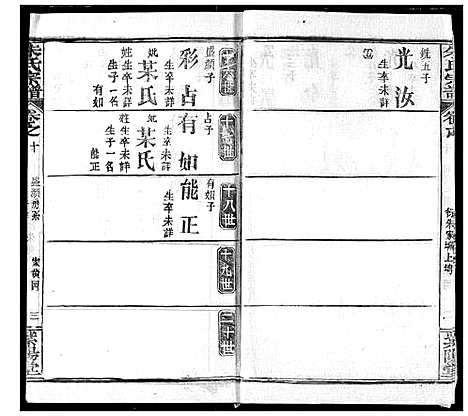 朱氏宗譜
光汝
生卒未詳
彩占
盛顏子
生卒未詳
妣某氏
姓生卒未詳
生子一名
有如
十七世
有如
占子
生卒未詳
妣某氏
姓生卒未詳
生子一名
能正
十八世
能正
有如子
生卒未詳
十九世
二十世
朱氏宗譜
卷之十
三
紫陽堂